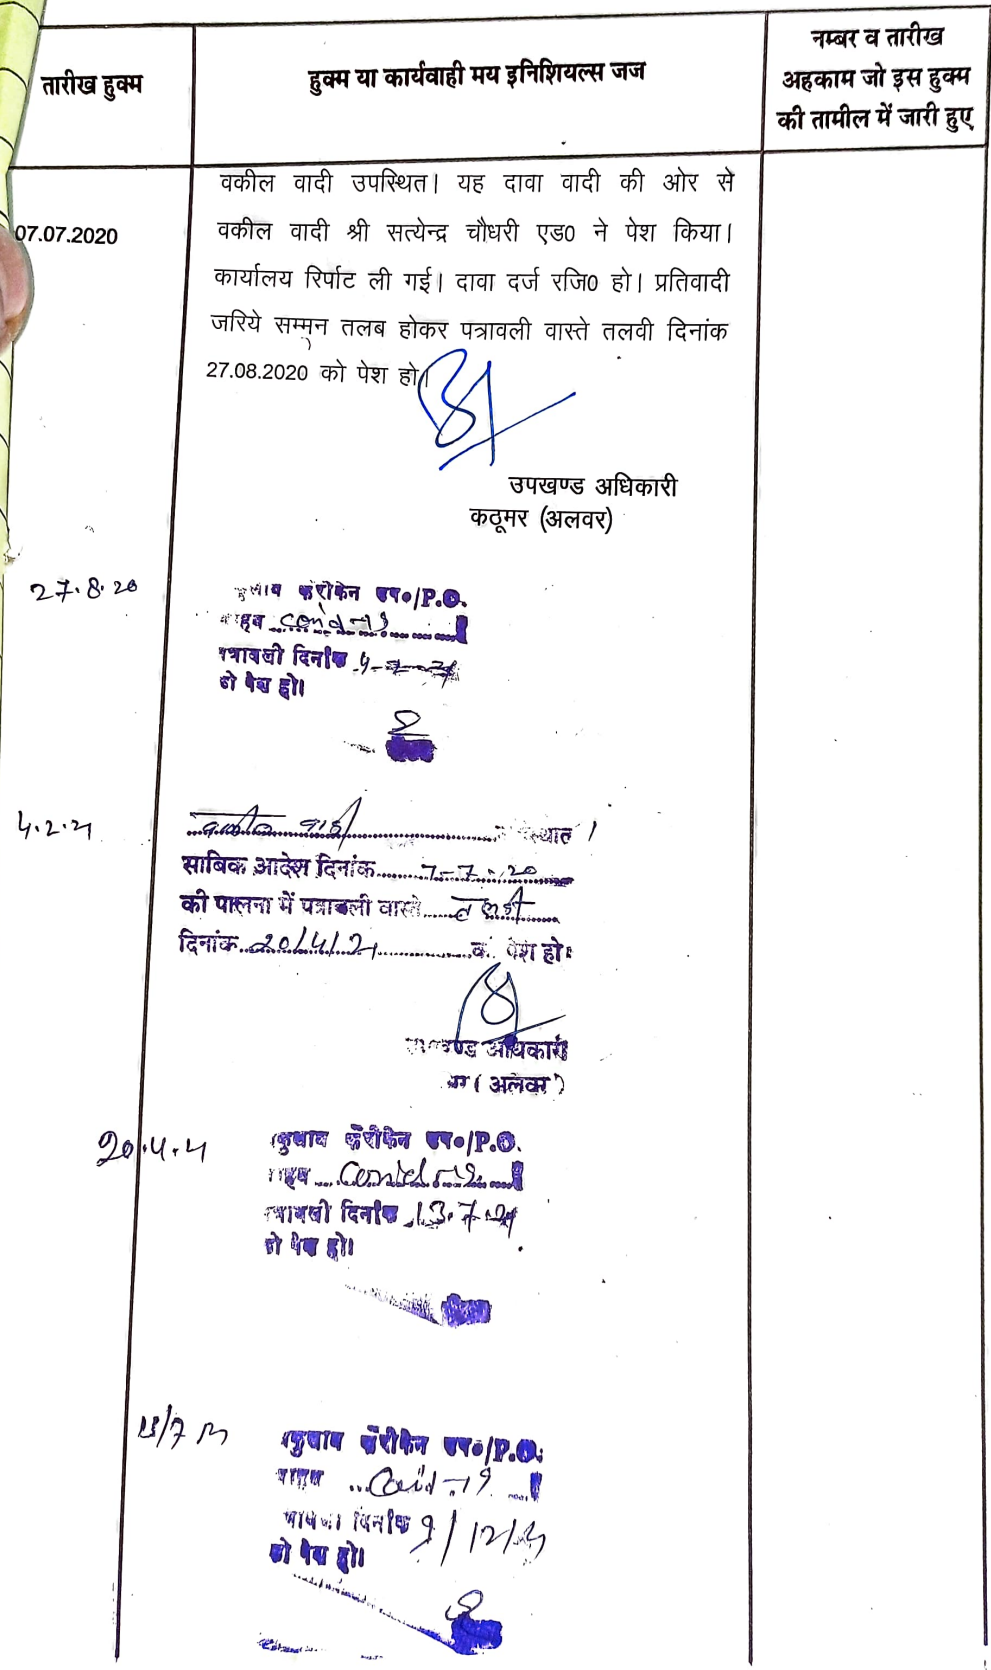 तारीख हुक्म
हुक्म या कार्यवाही मय इनिशियल्स जज
नम्बर व तारीख
अहकाम जो इस हुक्म
की तामील में जारी हुए
07.07.2020
वकील वादी उपस्थित। यह दावा वादी की ओर से
वकील वादी श्री सत्येन्द्र चौधरी एड0 ने पेश किया।
कार्यालय रिर्पाट ली गई। दावा दर्ज रजि0 हो। प्रतिवादी
जरिये सम्मन तलब होकर पत्रावली वास्ते तलवी दिनांक
27.08.2020 को पेश हो।
उपखण्ड अधिकारी
कठूमर (अलवर)
27.8.20
P.O.
covid-19
पत्रावली दिनांक 4-2-21
को पेश हो।
4.2.21
वकील वादी
साबिक आदेश दिनांक 7-7-20
की पालना में पत्रावली वास्ते तलवी
दिनांक 20/4/21 पेश हो।
अधिकारी
(अलवर)
20.4.21
P.O.
Covid-19
दिनांक 13.7.21
को पेश हो।
13/7/21
P.O.
Covid-19
दिनांक 9/12/21
को पेश हो।